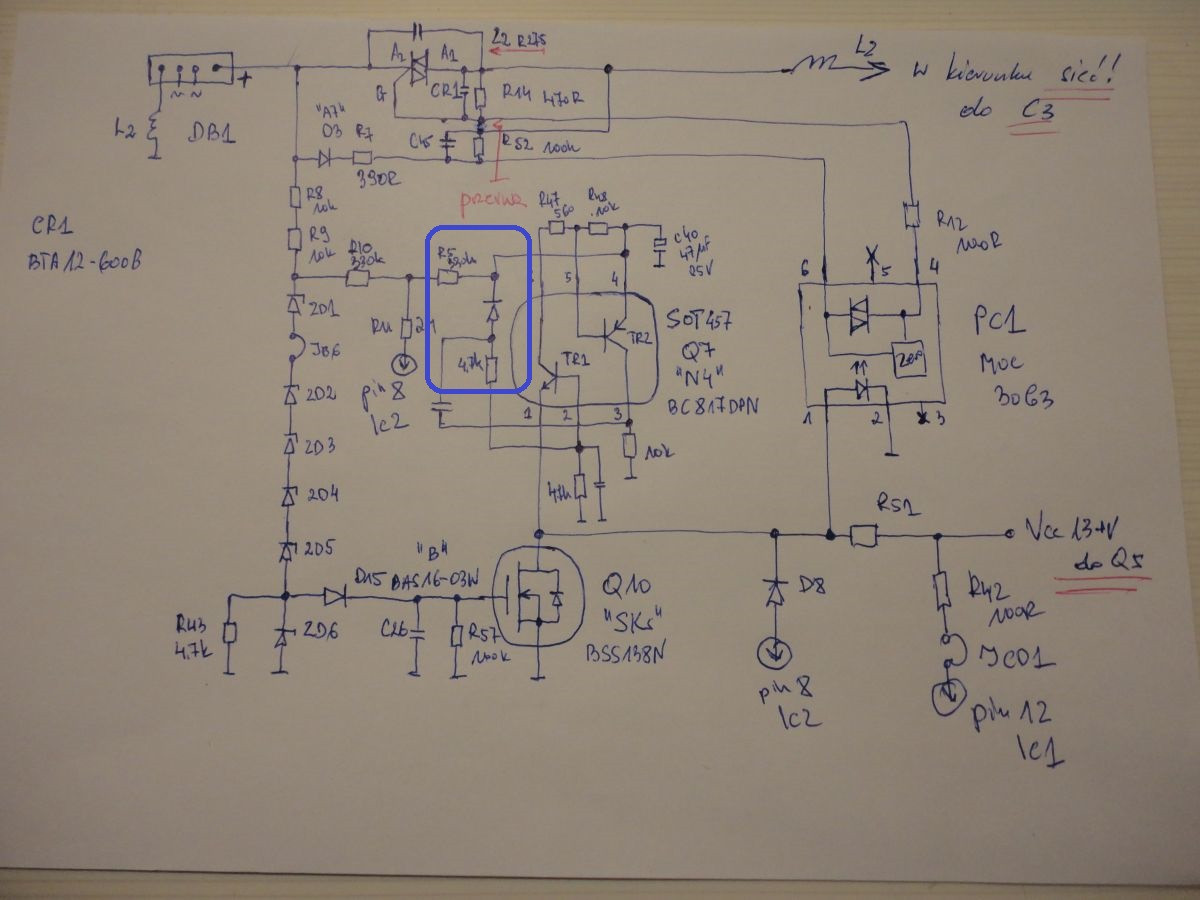 L2 R275
A2 A1
G
CR1
R14 470R
L2
w kierunku sieć!!
do C3
+
~ ~
L2
DB1
"A7"
D3 R7
390R
C45
R52 100k
przerwa
R8
10k
R9
10k
CR1
BTA12-600B
R47
560
R48
10k
C40
47µF
25V
R12
100R
6 5 4
R10
330k
R5
5 4
ZD1
R11
JB6
4.7k
TR1
TR2
SOT457
Q7
"N4"
BC817DPN
PC1
MOC
3063
ZD2
pin 8
Ic2
1 2 3
1 2 3
ZD3
10k
ZD4
47k
R51
Vcc 13+V
do Q5
ZD5
"B"
D15 BAS16-03W
R43
4.7k
ZD6
C26
R57
100k
Q10
"SKs"
BSS138N
D8
R42
100R
JC01
pin 8
Ic2
pin 12
Ic1